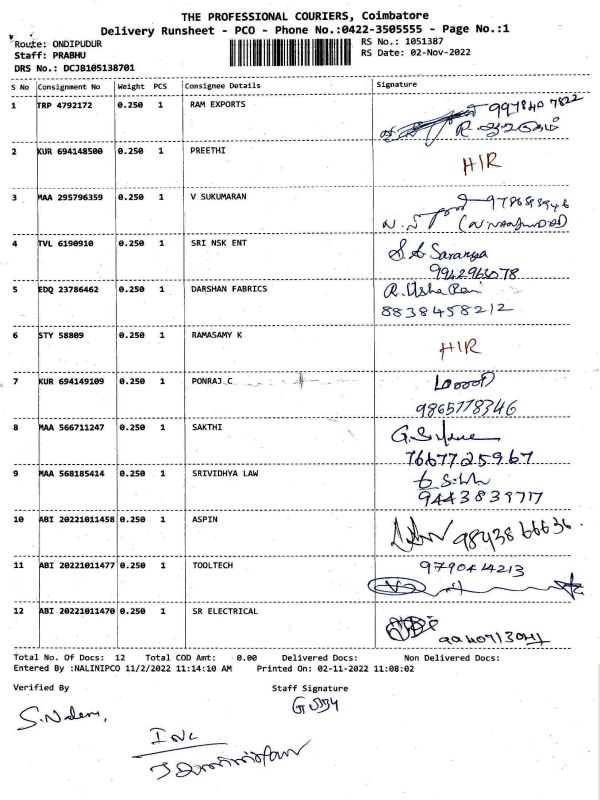 THE PROFESSIONAL COURIERS, Coimbatore
Delivery Runsheet - PCO - Phone No.:0422-3505555 - Page No.:1
Route: ONDIPUDUR RS No.: 1051387
Staff: PRABHU RS Date: 02-Nov-2022
DRS No.: DCJB105138701
S No Consignment No Weight PCS Consignee Details Signature
1 TRP 4792172 0.250 1 RAM EXPORTS 9978407822
R.
2 KUR 694148500 0.250 1 PREETHI HIR
3 MAA 295796359 0.250 1 V SUKUMARAN
4 TVL 6190910 0.250 1 SRI NSK ENT S. A Saranya
5 EDQ 23786462 0.250 1 DARSHAN FABRICS R. Usha Rani
8838458212
6 STY 58809 0.250 1 RAMASAMY K HIR
7 KUR 694149109 0.250 1 PONRAJ C
9865778346
8 MAA 566711247 0.250 1 SAKTHI
7667725967
9 MAA 568185414 0.250 1 SRIVIDHYA LAW
9443839717
10 ABI 20221011458 0.250 1 ASPIN 9843866636
11 ABI 20221011477 0.250 1 TOOLTECH 9790414213
12 ABI 20221011470 0.250 1 SR ELECTRICAL
Total No. Of Docs: 12 Total COD Amt: 0.00 Delivered Docs: Non Delivered Docs:
Entered By :NALINIPCO 11/2/2022 11:14:10 AM Printed On: 02-11-2022 11:08:02
Verified By Staff Signature